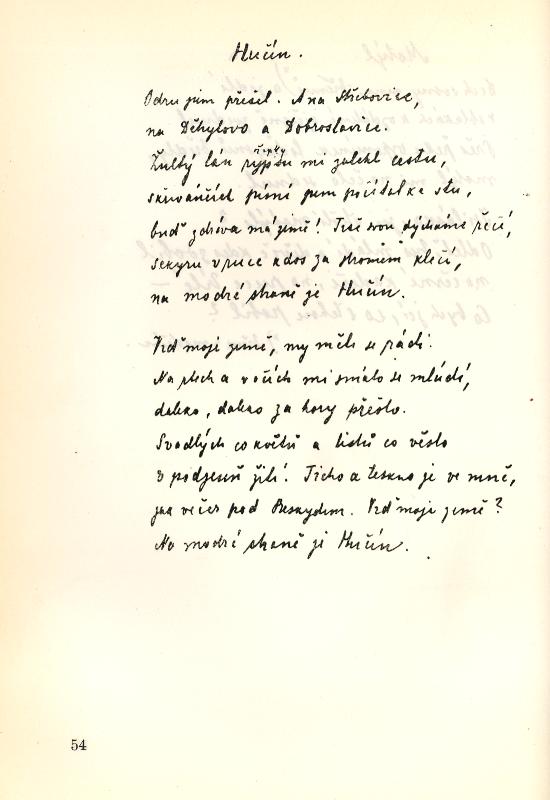 Hučín.
Odru jsem přešel. A na Třebovice,
na Děhylovo a Dobroslavice.
řepky
Žultý lán mi zalehl cestu,
skřivánčích písní jsem počítal ke stu,
buď zdráva má země! svou dýcháme řečí,
sekyru v ruce kdos za stromem klečí,
na modré straně je Hučín.
Viď moje země, my měli se rádi.
Na rtech a v očích mi smálo se mládí,
daleko, daleko za hory přešlo.
Svadlých co květů a listů co vešlo
v podjeseň žití. Ticho a teskno je ve mně,
jak večer pod Beskydem. Viď moje země?
Na modré straně je Hučín.
54